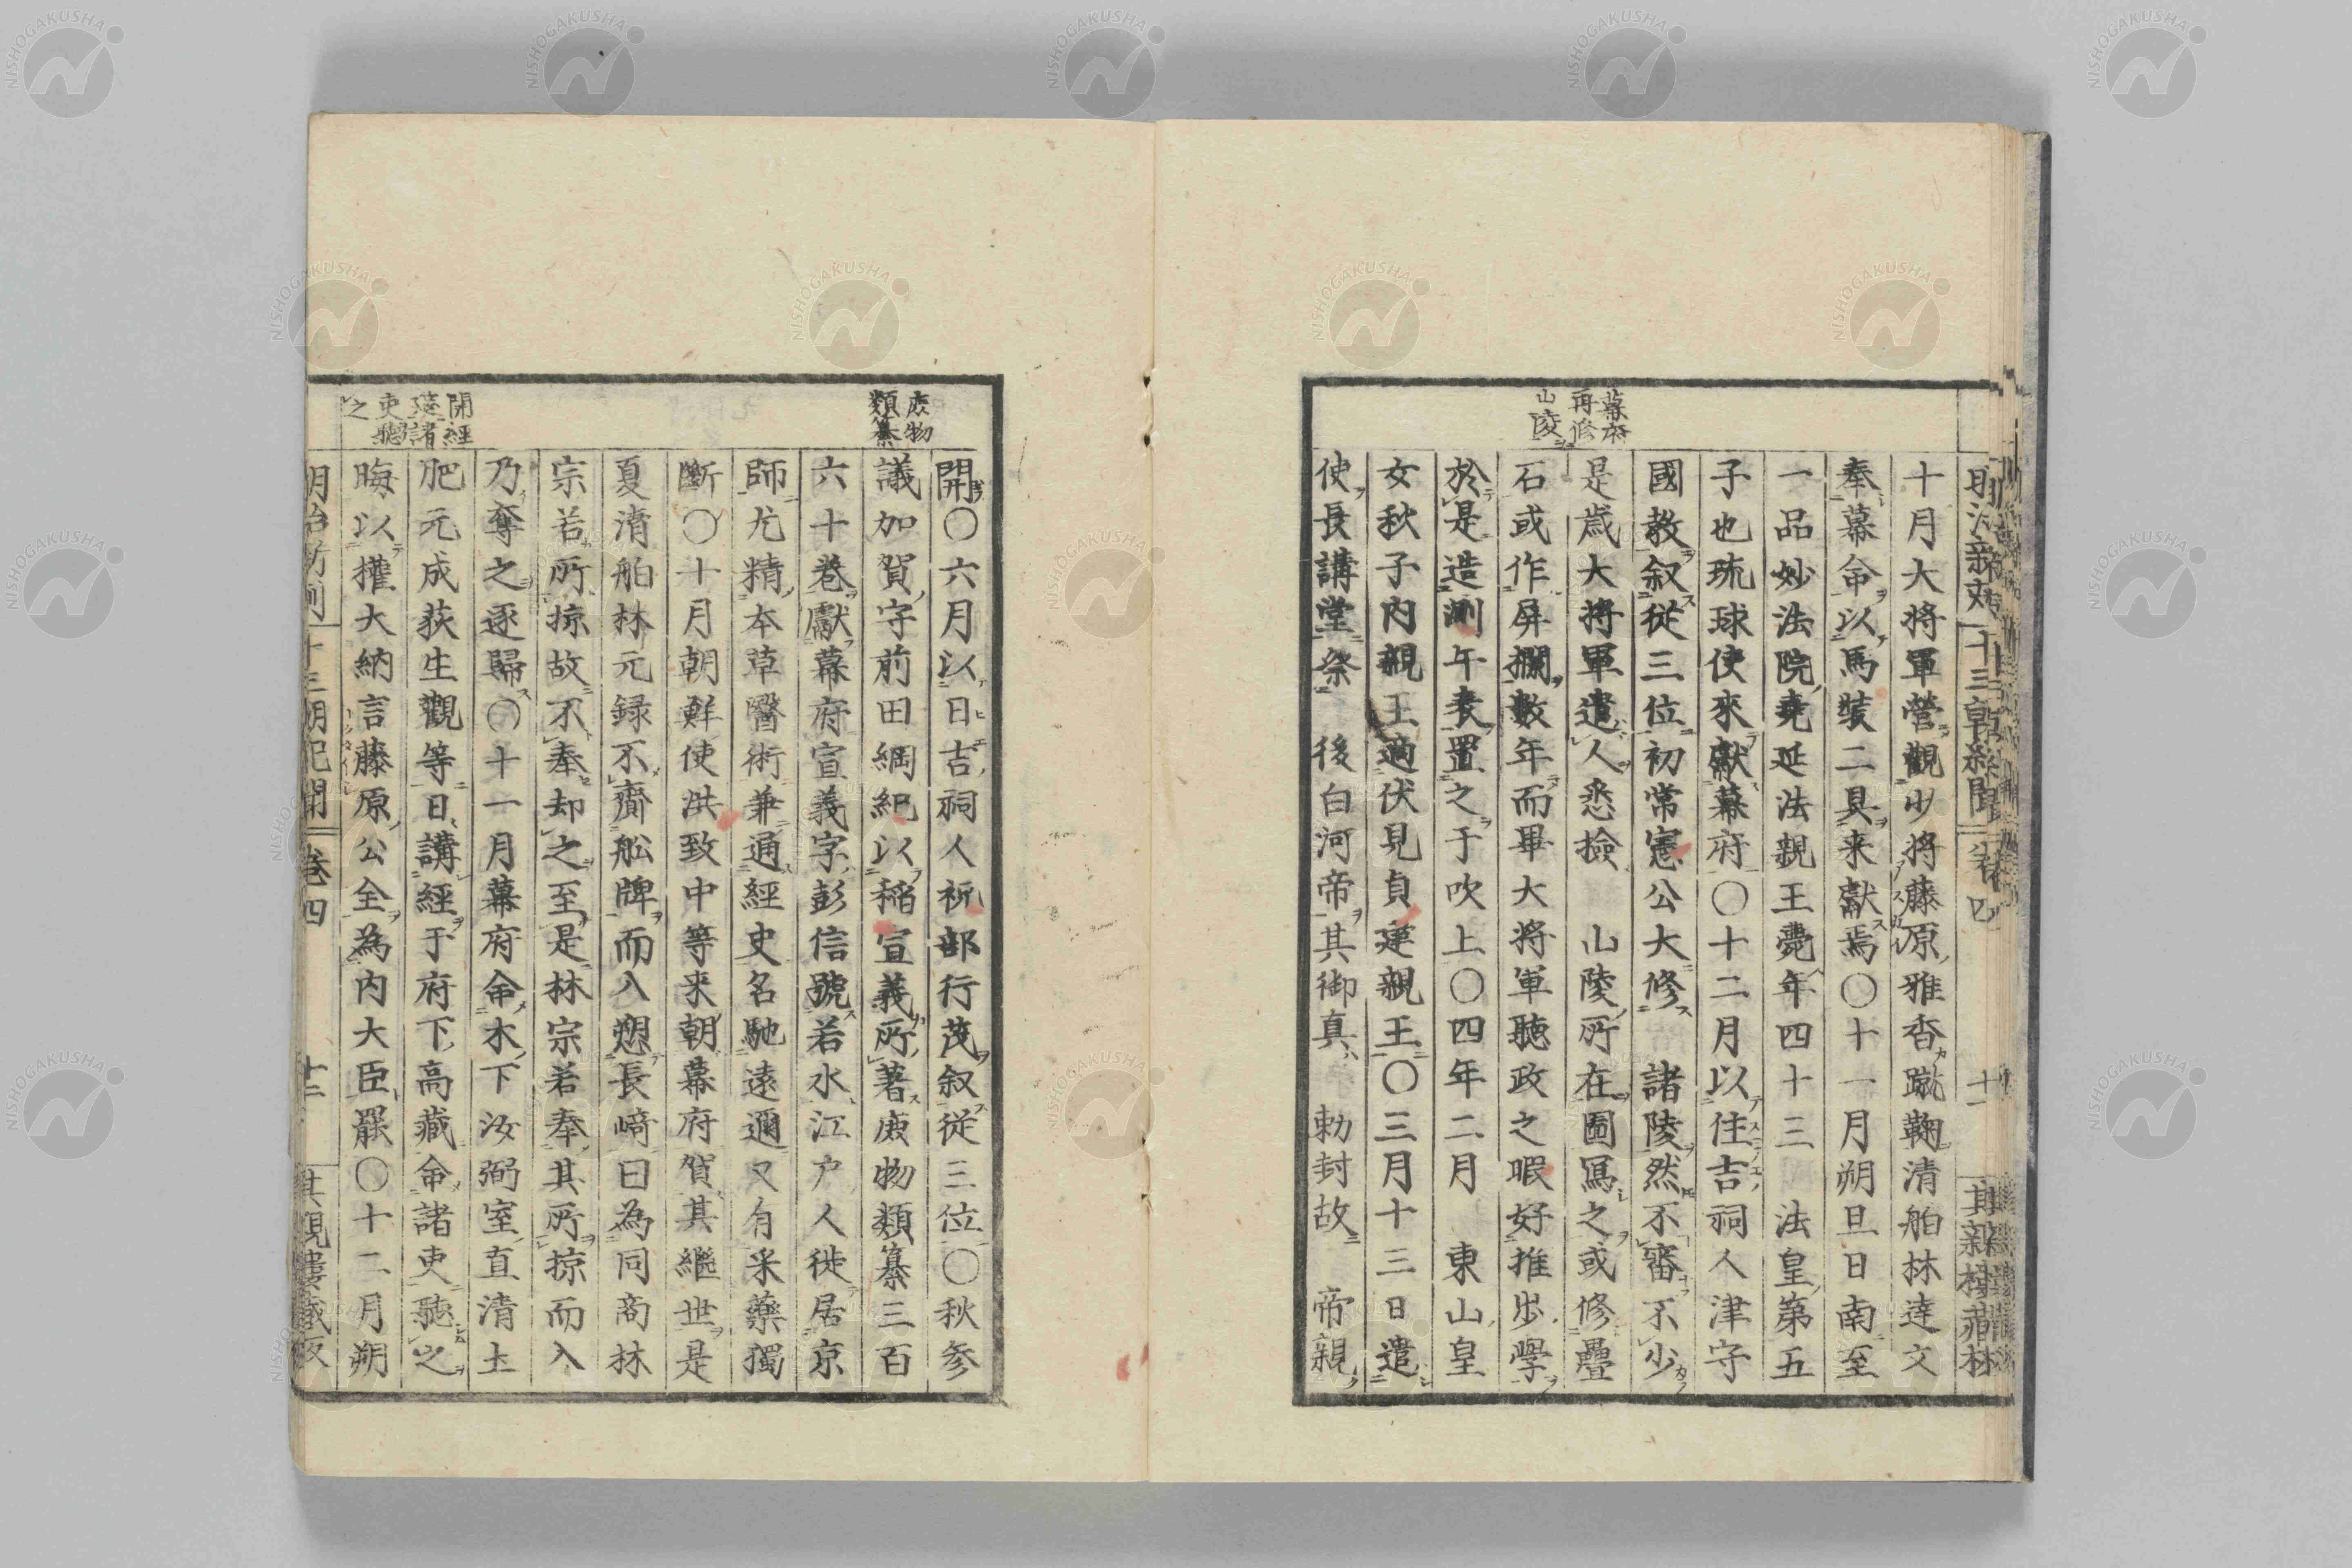 幕府
再修
山陵
十月大将軍營觀少將藤原雅香蹴鞠清舶林達文
奉幕命以馬裝二具来獻焉〇十一月朔旦日南至
一品妙法院堯延法親王薨年四十三 法皇第五
子也琉球使來獻幕府〇十二月以住吉祠人津守
國教叙從三位初常憲公大修 諸陵然不審不少
是歳大将軍遣人悉撿 山陵所在圖寫之或修疊
石或作屏攔數年而畢大将軍聽政之暇好推步學
於是造測午表置之于吹上〇四年二月 東山皇
女秋子內親王適伏見貞建親王〇三月十三日遣
使長講堂祭 後白河帝其御真 勅封故 帝親
庶物
類纂
開經
筵諸
吏聽
之
開〇六月以日吉祠人祝部行茂叙從三位〇秋參
議加賀字前田綱紀以稲宣義所著庻物類纂三百
六十卷獻幕府宣義字彭信號若水江戸人徙居京
師尤精本草醫術兼通經史名馳遠邇又有采藥獨
斷〇十月朝鮮使洪致中等来朝幕府賀其繼世是
夏清舶林元録不齎舩牌而入愬長﨑曰為同商林
宗若所掠故不奉却之至是林宗若奉其所掠而入
乃奪之逐歸〇十一月幕府命水下汝弼室直清土
肥元成荻生觀等日講經于府下高藏命諸吏聽之
晦以權大納言藤原公全為內大臣罷〇十二月朔
明治新刻 十三朝紀聞 卷四 十二